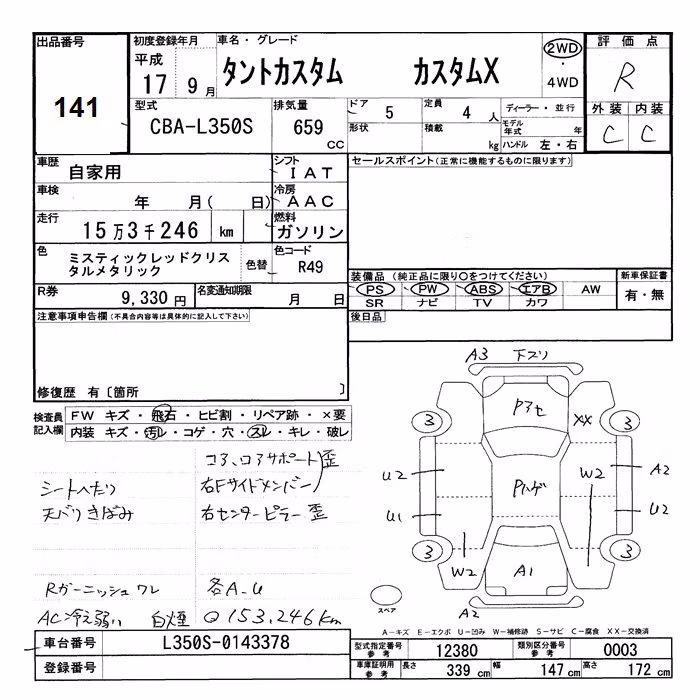 出品番号
141
初度登録年月
平成
17 9月
車名・グレード
タントカスタム カスタムX
2WD
・
4WD
評価点
R
型式
CBA-L350S
排気量
659
CC
ドア
5
形状
定員
4 人
積載
kg
ディーラー・並行
モデル年式 年
ハンドル 左・右
外装 内装
C C
車歴
自家用
シフト
IAT
車検
年 月( 日)
冷房
AAC
走行
15万3千246 km
燃料
ガソリン
色
ミスティックレッドクリスタルメタリック
色替
色コード
R49
R券
9,330円
名変通知期限
月 日
セールスポイント(正常に機能するものに限ります)
装備品(純正品に限り○をつけてください)
PS PW ABS エアB AW
SR ナビ TV カワ
新車保証書
有・無
後日品
注意事項申告欄(不具合内容等は具体的に記入して下さい)
修復歴 有〔箇所 〕
検査員記入欄
FW キズ・飛石・ヒビ割・リペア跡・×要
内装 キズ・汚レ・コゲ・穴・スレ・キレ・破レ
コア、コアサポート歪
シートへたり 右Fサイドメンバー
天バリきばみ 右センターピラー歪
Rガーニッシュワレ 各A.U
AC冷え弱い 白煙 Q153,246km
A3 下スリ
Pアセ
3 XX 3
U2 Pハゲ W2 A2
U1 U2
3 3
W2 A1
スペア
A2
A-キズ E-エクボ U-凹み W-補修跡 S-サビ C-腐食 XX-交換済
車台番号
L350S-0143378
登録番号
型式指定番号 参考
12380
類別区分番号 参考
0003
車庫証明用 参考
長さ 339 cm
幅 147 cm
高さ 172 cm